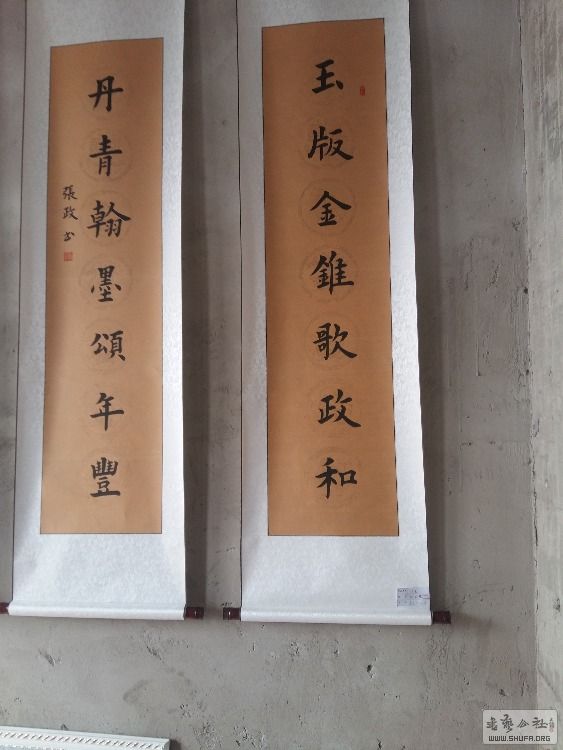 玉版金錐歌政和
丹青翰墨頌年豐
張政書
書藝公社
WWW.SHUFA.ORG